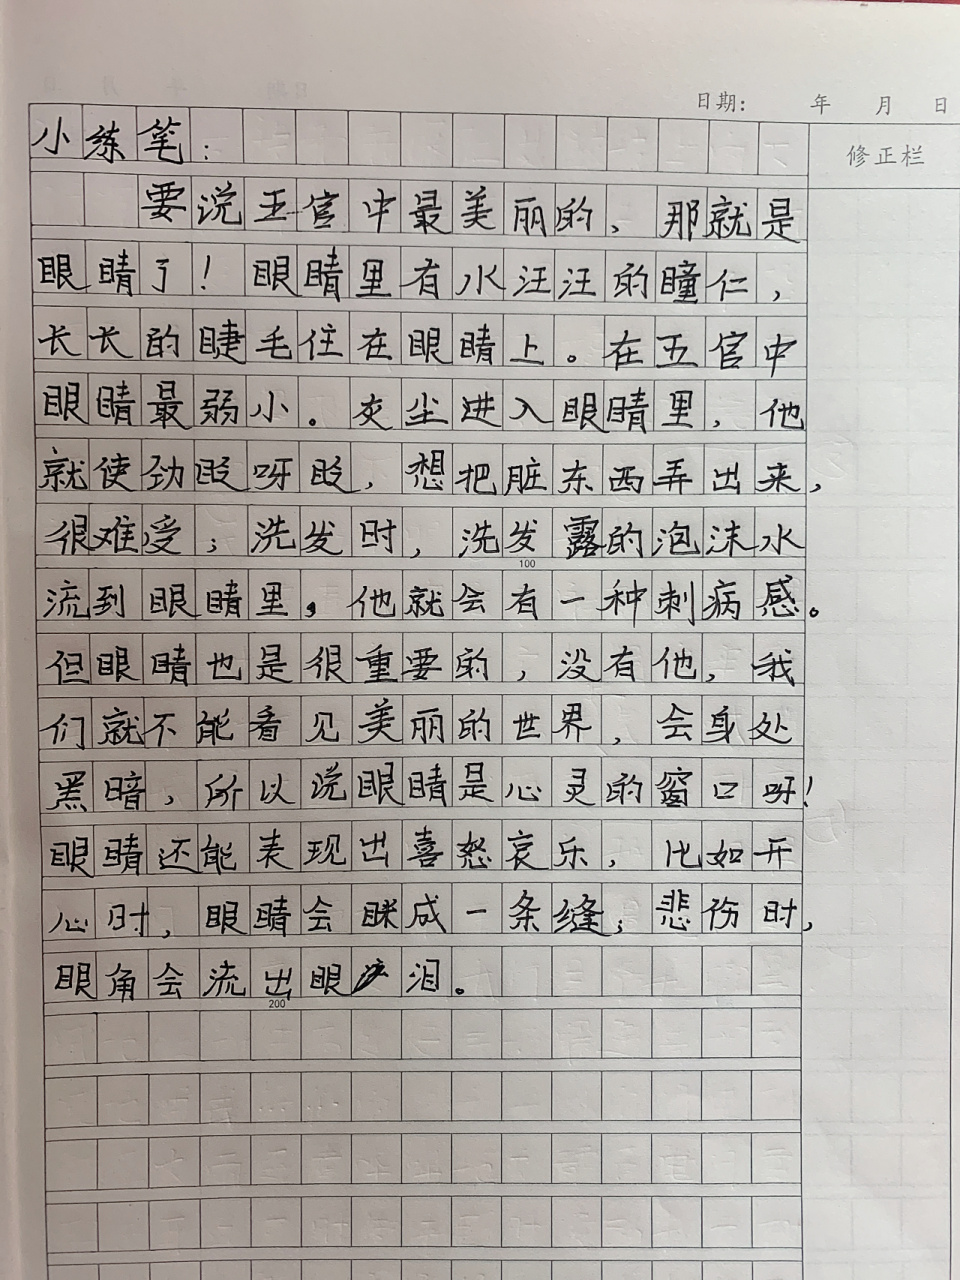 日期： 年 月 日
修正栏
小练笔：
要说五官中最美丽的，那就是
眼睛了！眼睛里有水汪汪的瞳仁，
长长的睫毛住在眼睛上。在五官中
眼睛最弱小。灰尘进入眼睛里，他
就使劲眨呀眨，想把脏东西弄出来，
很难受；洗发时，洗发露的泡沫水
100
流到眼睛里，他就会有一种刺病感。
但眼睛也是很重要的，没有他，我
们就不能看见美丽的世界，会身处
黑暗，所以说眼睛是心灵的窗口呀！
眼睛还能表现出喜怒哀乐，比如开
心时，眼睛会眯成一条缝；悲伤时，
眼角会流出眼泪。
200